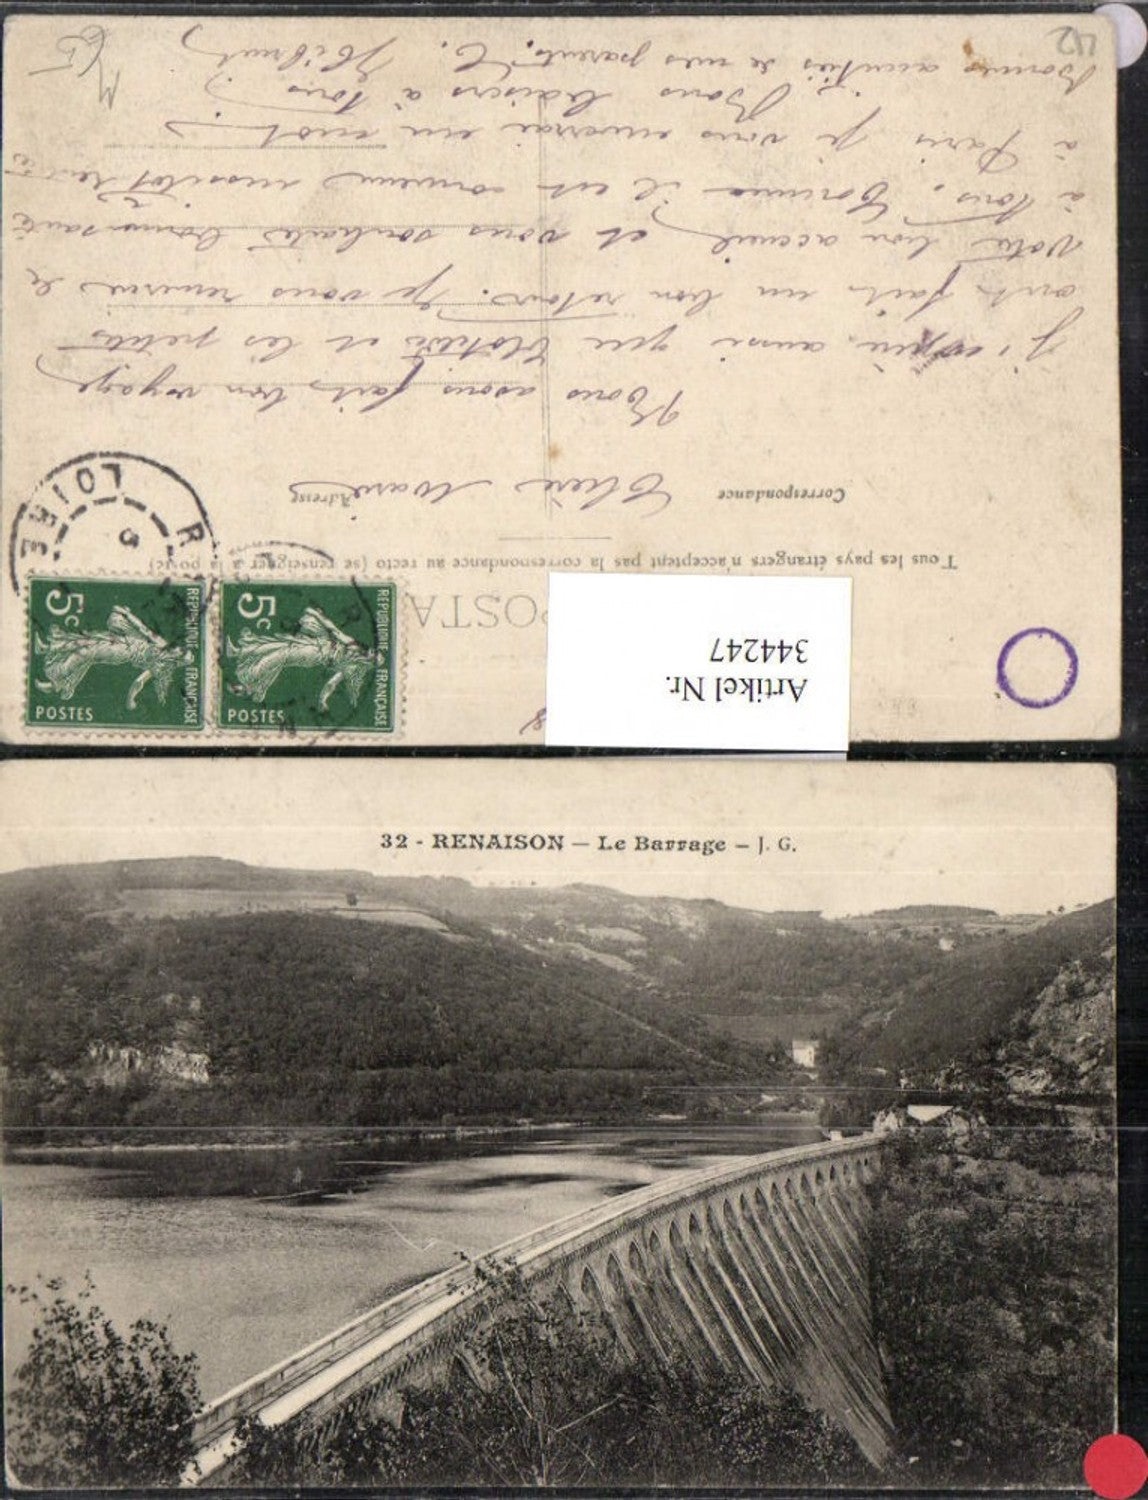 Artikel Nr.
344247
POSTA
Tous les pays étrangers n'acceptent pas la correspondance au recto (se renseigner à la poste)
Correspondance
Adresse
Chère Marie
Nous avons fait bon voyage
J'espère aussi que et les petits
ont fait un bon retour. Je vous remercie de
votre bon accueil et vous souhaite bonne santé
à tous. Comme il est convenu aussitôt
à Paris je vous enverrai un mot.
Bons baisers à tous
Bonnes amitiés de mes parents. C.
42
REPUBLIQUE FRANÇAISE
5c
POSTES
REPUBLIQUE FRANÇAISE
5c
POSTES
LOIRE
32 - RENAISON — Le Barrage — J. G.